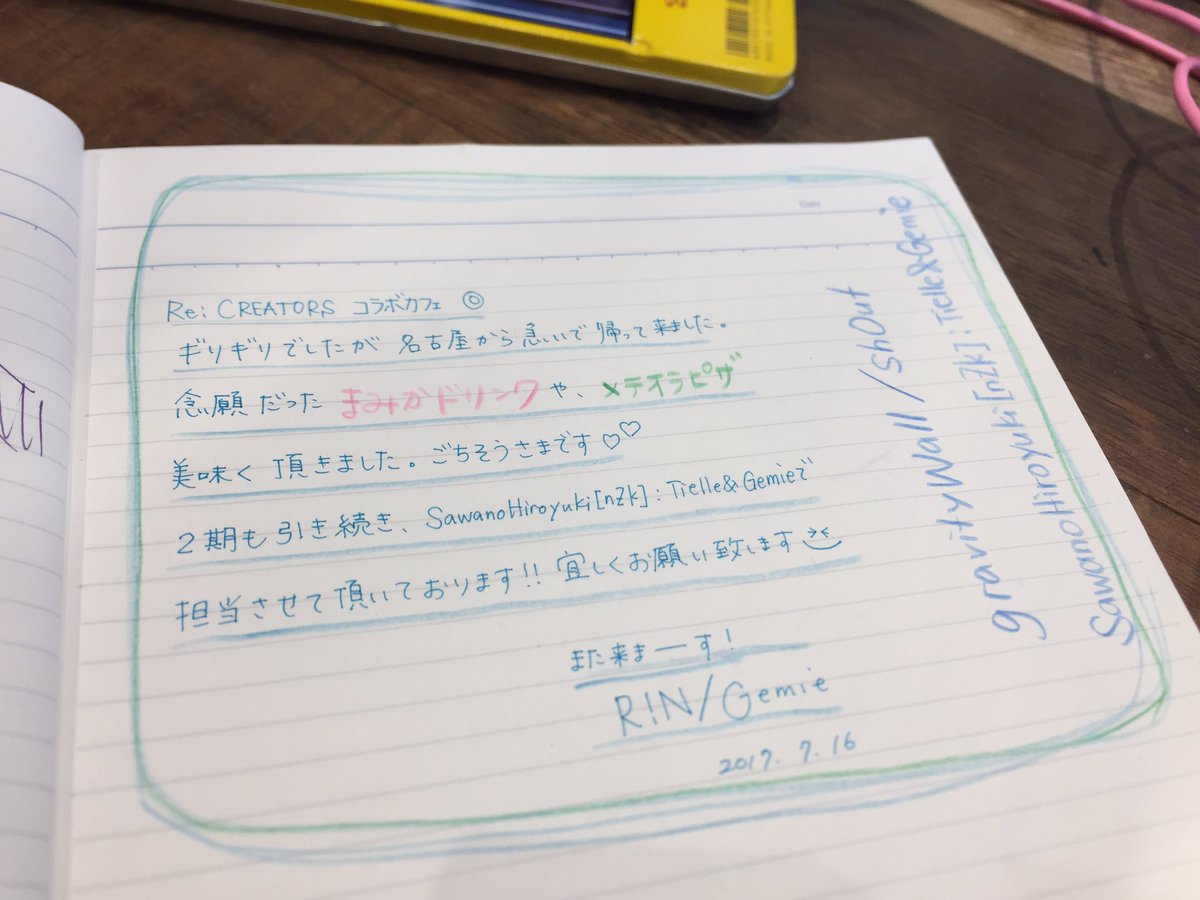 Re: CREATORS コラボカフェ ◎
ギリギリでしたが 名古屋から急いで帰って来ました。
念願だった まみかドリンクや、メテオラピザ
美味く頂きました。ごちそうさまです♡♡
2期も引き続き、SawanoHiroyuki[nZk]:Tielle&Gemieで
担当させて頂いております!! 宜しくお願い致します
また来まーす!
R!N/Gemie
2017. 7. 16
gravityWall/sh0ut
SawanoHiroyuki[nZk]:Tielle&Gemie
Date